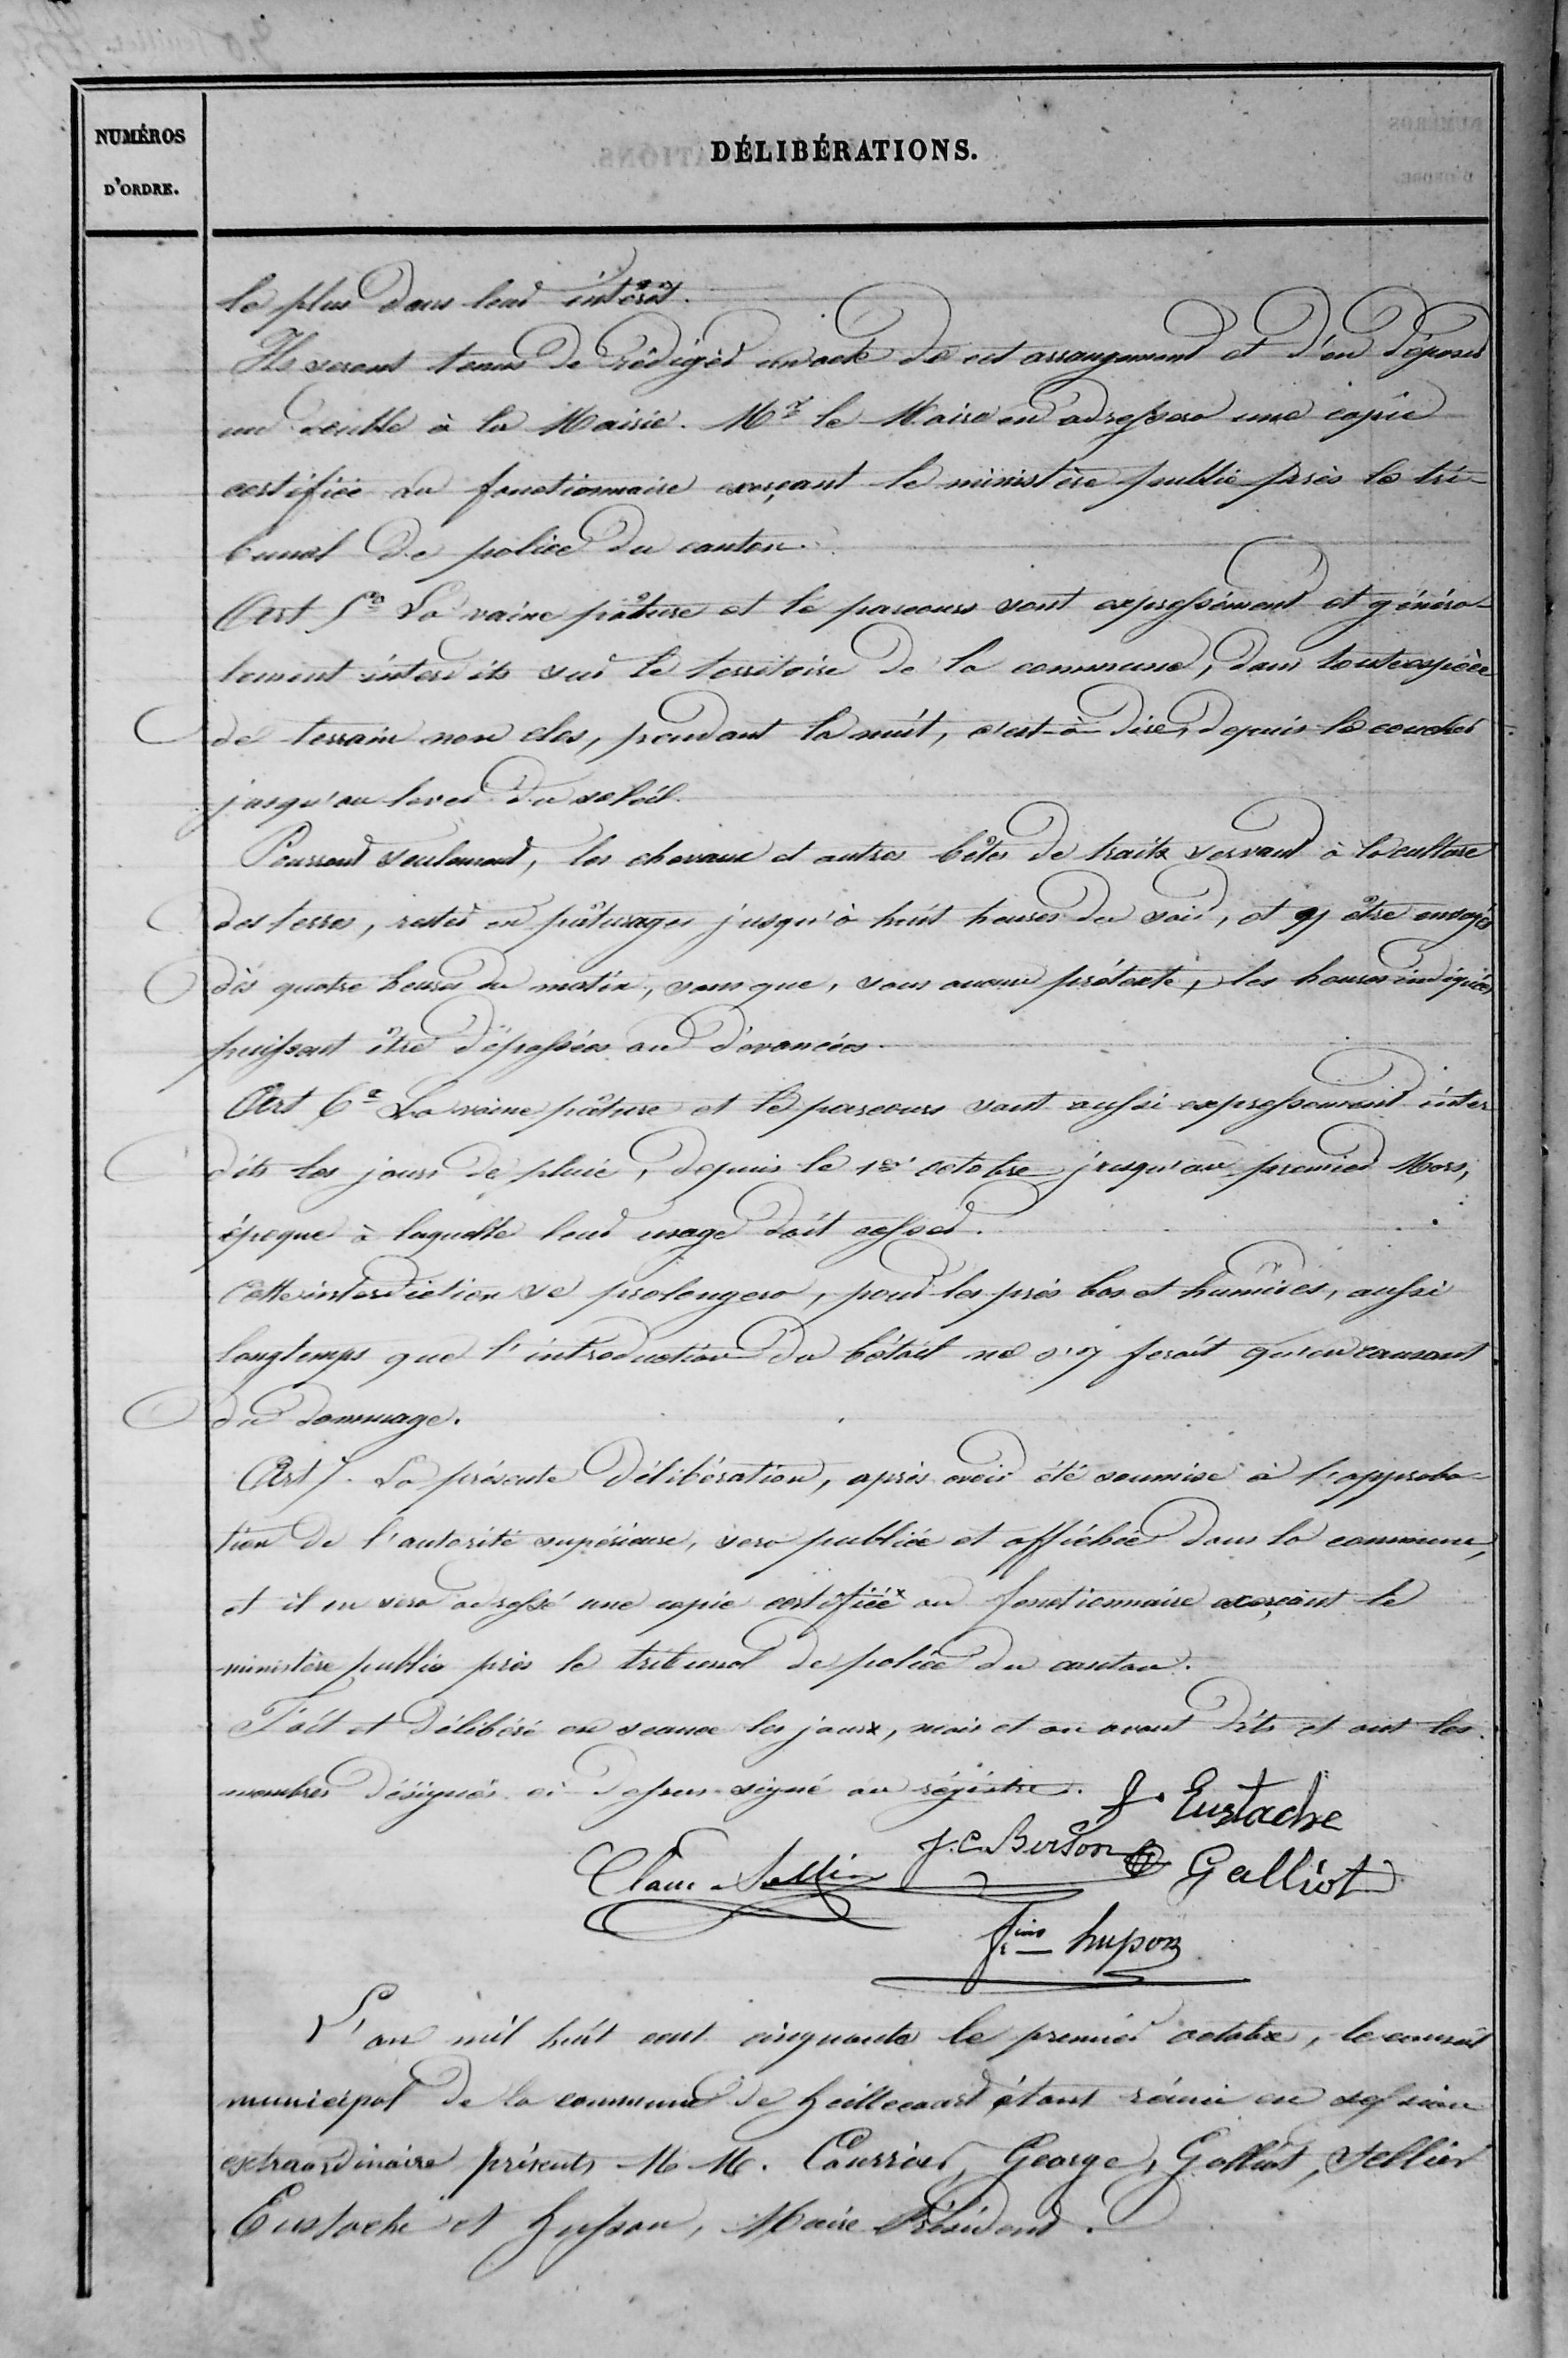 NUMÉROS
D'ORDRE.
DÉLIBÉRATIONS.
le plus dans leur intérêt.
Ils seront tenus de rédiger un acte de cet arrangement et d'en déposer
un double à la Mairie. Mr le Maire en adressera une copie
certifiée au fonctionnaire exerçant le ministère public près le tri-
bunal de police du canton.
Art 5e La vaine pâture et le parcours sont expressément et généra-
lement interdits sur le territoire de la commune, dans toute espèce
de terrain non clos, pendant la nuit, c'est-à-dire, depuis le coucher
jusqu'au lever du soleil.
Pourront seulement, les chevaux et autres bêtes de traits servant à la culture
des terres, rester en pâturages jusqu'à huit heures du soir, et y être envoyés
dès quatre heures du matin, sans que, sous aucun prétexte, les heures indiquées
puissent être dépassées ou dévancées.
Art 6e La vaine pâture et le parcours sont aussi expressement inter
dits les jours de pluie, depuis le 1er octobre jusqu'au premier Mars,
époque à laquelle leur usage doit cesser.
Cette interdiction se prolongera, pour les prés bas et humides, aussi
longtemps que l'introduction du bétail ne s'y ferait qu'en causant
du dommage.
Art 7. La présente délibération, après avoir été soumise à l'approba-
tion de l'autorité supérieure, sera publiée et affichée dans la commune,
et il en sera adressé une copie certifiée au fonctionnaire exerçant le
ministère public près le tribunal de police du canton.
Fait et délibéré en séance les jours, mois et an avant dits et ont les
membres désignés ci-dessus signé au régistre. J. Eustache
J.C. Berson Galliot
Claude Sellier
husson
L'an mil huit cent cinquante le premier octobre, le conseil
municipal de la commune de heillecourt étant réuni en session
extraordinaire présents M.M. Courrier, George, Galliot, Sellier
Eustache et husson, Maire Président.